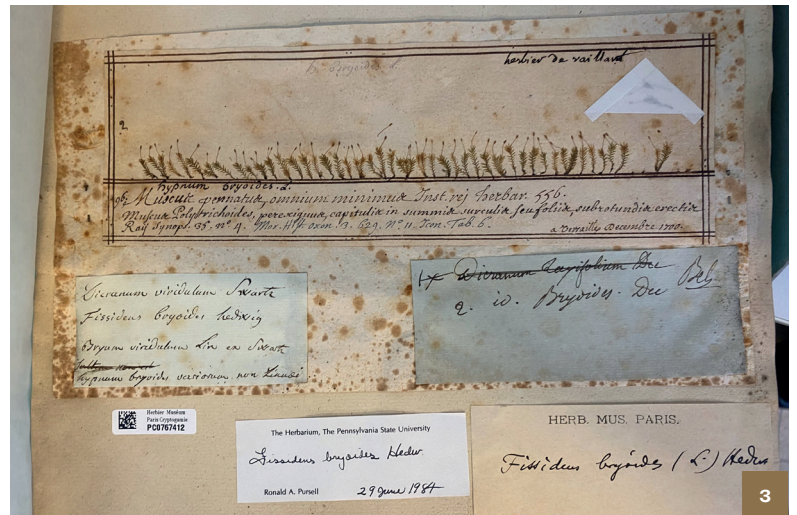 herbier de vaillant
h. bryoides. L.
2.
hypnum bryoides. L.
96 Muscus pennatus, omnium minimus Inst. rej herbar. 556.
Muscus Polytrichoides, perexiguus, capitulis in summis surculis, seu foliis, subrotundis erectis
Ray Synops. 35. nº 4. Mor. Hist. oxon. 3. 629. nº 11. Icon. Tab. 6.
a Versailles Decembre 1700.
Dicranum viridulum Swartz
Fissidens bryoides hedwig
Bryum viridulum Lin ex Swartz
hypnum bryoides variorum. non Linnæi
1+ Dicranum taxifolium Dec
2. id. Bryoides. Dec Bel
Herbier Muséum
Paris Cryptogamie
PC0767412
The Herbarium, The Pennsylvania State University
Fissidens bryoides Hedw.
Ronald A. Pursell 29 June 1984
HERB. MUS. PARIS.
Fissidens bryoides (L.) Hedw
3